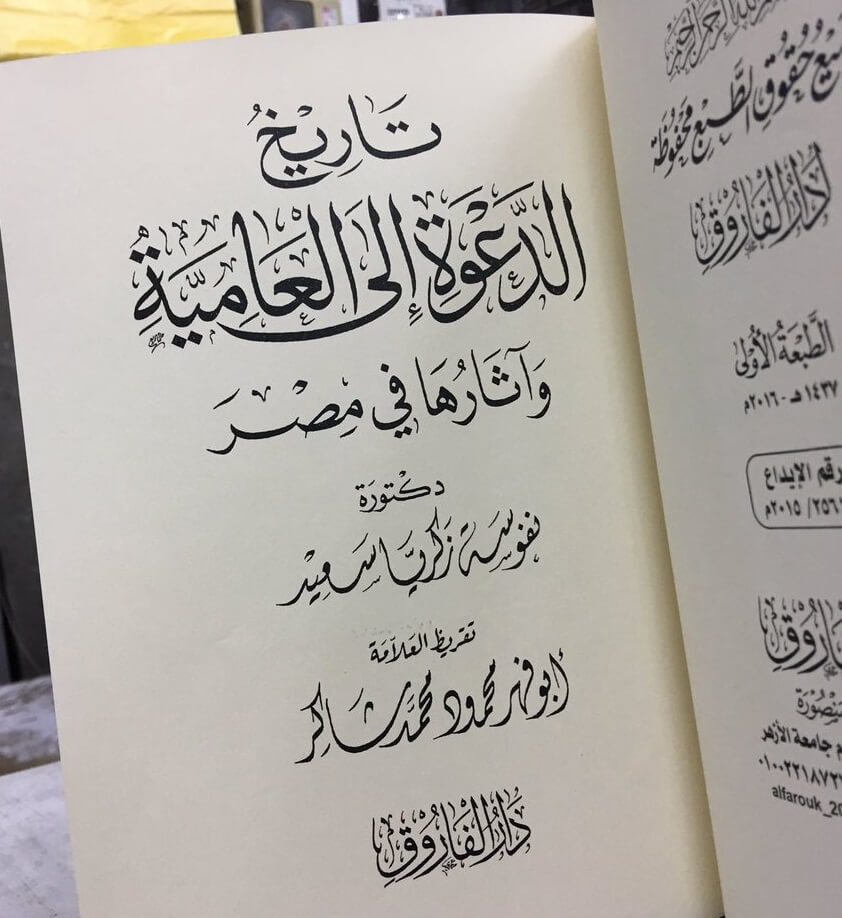 تاريخ
الدعوة إلى العامية
وآثارها في مصر
دكتورة
نفوسة زكريا سعيد
تقريظ العلامة
أبو فهر محمود محمد شاكر
دار الفاروق
حقوق الطبع محفوظة
دار الفاروق
الطبعة الأولى
١٤٣٧ هـ - ٢٠١٦م
رقم الإيداع
٢٠١٥م
جامعة الأزهر